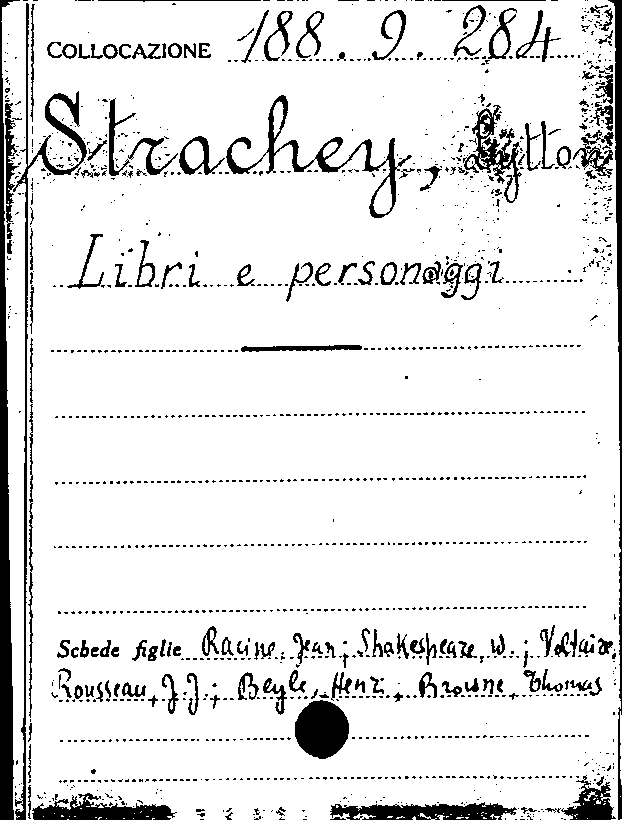 COLLOCAZIONE 188.9.284
Strachey, Lytton
Libri e personaggi
Schede figlie Racine, Jean; Shakespeare, W.; Voltaire,
Rousseau, J.J.; Beyle, Henri; Browne, Thomas